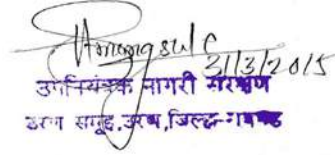 31/3/2015
उपनियंत्रक नागरी संरक्षण
उरण समूह, उरण, जिल्हा-रायगड